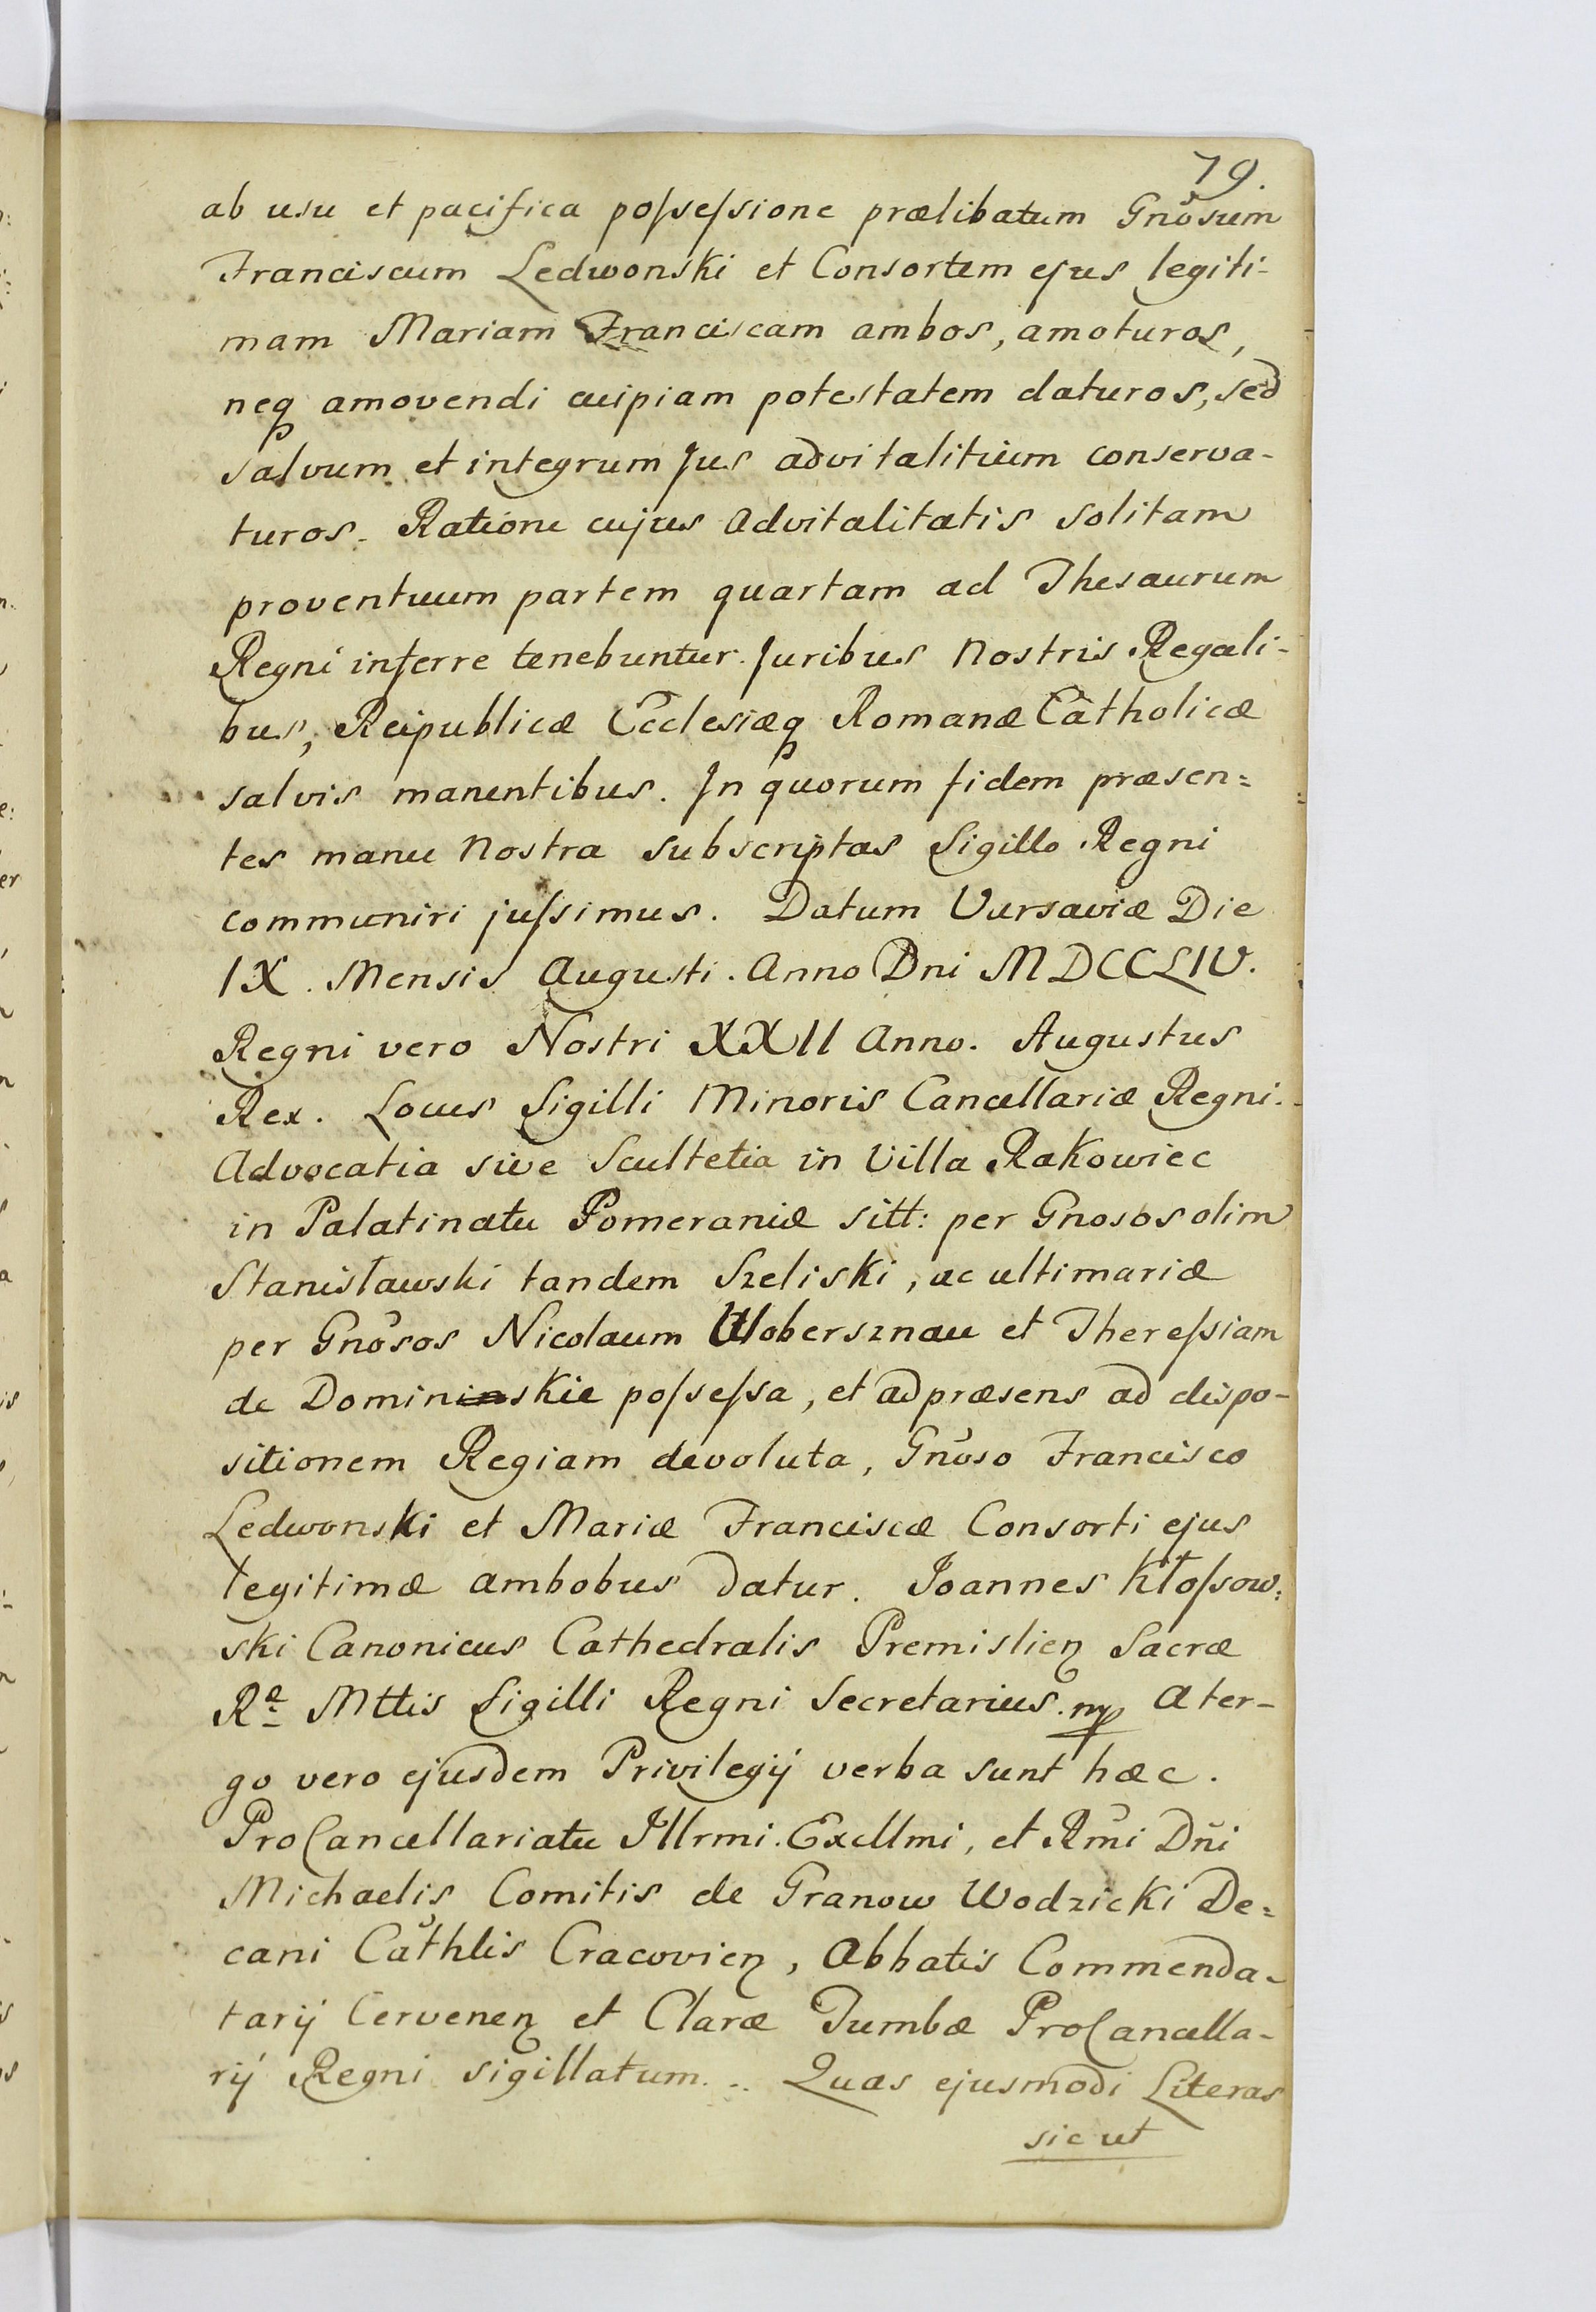 79.
ab usu et pacifica poſseſsione prælibatum Gnõsum
Franciscum Ledwonski et Consortem ejus legiti-
mam Mariam Franciscam ambos, amoturos,
neq amovendi cuipiam potestatem daturos, sed
salvum et integrum Jus advitalitium conserva-
turos. Ratione cujus Advitalitatis solitam
proventuum partem quartam ad Thesaurum
Regni inferre tenebuntur. Juribus Nostris Regali-
bus, Reipublicæ Ecclesiæq Romanæ Catholicæ
salvis manentibus. In quorum fidem præsen=
tes manu Nostra subscriptas Sigillo Regni
communiri juſsimus. Datum Varsaviæ Die
IX. Mensis Augusti. Anno Dni MDCCLIV.
Regni vero Nostri XXII Anno. Augustus
Rex. Locus Sigilli Minoris Cancellariæ Regni.
Advocatia sive Scultetia in Villa Rakowiec
in Palatinatu Pomeraniæ sitt: per Gnosos olim
Stanisławski tandem Szeliski, ac ultimariæ
per Gnõsos Nicolaum Wobersznau et Thereſsiam
de Domininskie poſseſsa, et ad præsens ad dispo-
sitionem Regiam devoluta, Gnõso Francisco
Ledwonski et Mariæ Franciscæ Consorti ejus
legitimæ ambobus datur. Joannes Kłoſsow=
ski Canonicus Cathedralis Premislieƞ Sacræ
Rᵃ Mttis Sigilli Regni Secretarius. mp A ter-
go vero ejusdem Privilegij verba sunt hæc.
ProCancellariatu Jllrmi. Excllmi, et Rm̃i Dñi
Michaelis Comitis de Granow Wodzicki De=
cani Cathlis Cracovieƞ, Abbatis Commenda-
tarij Cerveneƞ et Claræ Tumbæ ProCancella-
rij Regni sigillatum. .. Quas ejusmodi Literas
sic ut